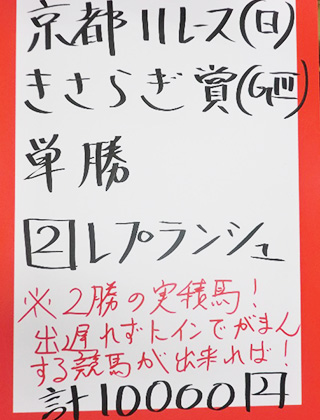 京都11レース(日)
きさらぎ賞(GIII)
単勝
2レプランシュ
※2勝の実績馬!
出遅れずにインでがまん
する競馬が出来れば!
計10000円